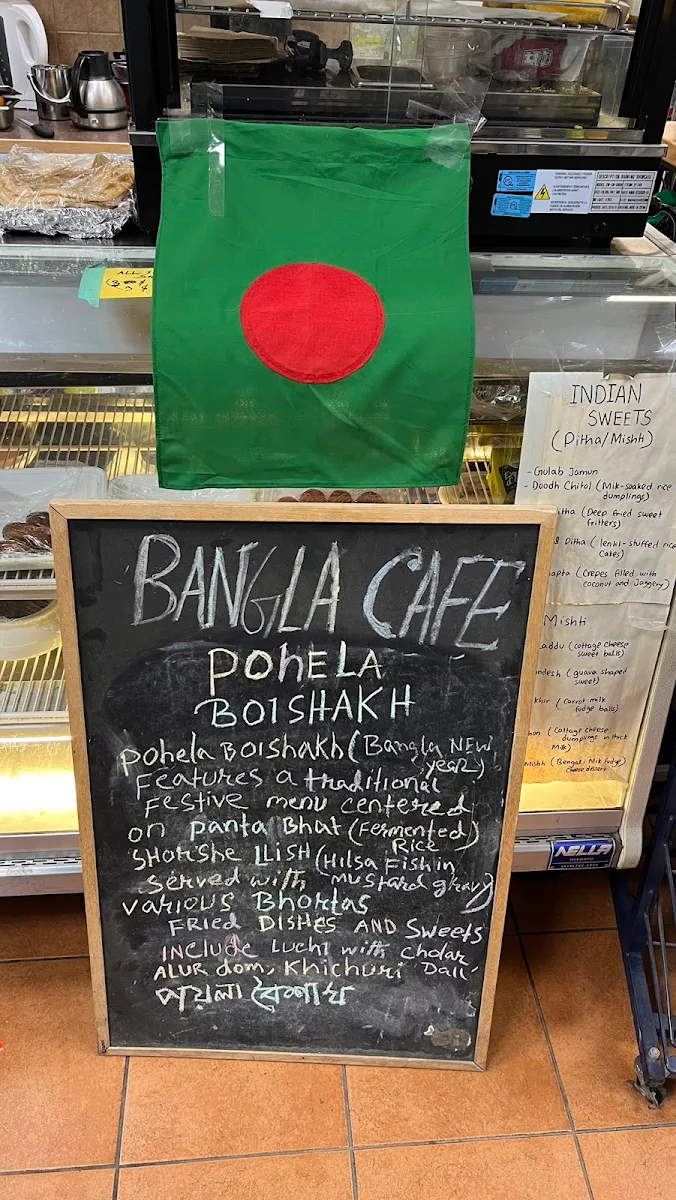 ALL
BANGLA CAFE
POHELA
BOISHAKH
pohela BOISHAKH (Bangla NEW
year)
Features a traditional
Festive menu centered
on panta Bhat (Fermented)
Rice
SHORSHE ILISH (Hilsa Fish in
mustard gravy)
served with
various Bhortas
FRIED DISHES AND Sweets
INCLUDE Luchi with cholar
ALUR dom, Khichuri Dall
পয়লা বৈশাখ
INDIAN
SWEETS
(Pitha/Mishti)
- Gulab Jamun
- Doodh Chitoi (Milk-soaked rice
dumplings)
tha (Deep fried sweet
fritters)
Pitha (lentil-stuffed rice
cakes)
apta (Crepes filled with
coconut and Jaggery)
Mishti
addu (cottage cheese
sweet balls)
ndesh (guava shaped
sweet)
khir (Carrot milk
fudge balls)
(Cottage cheese
dumplings in thick
Milk)
Mishti (Bengali Milk fudge/
cheese dessert
NELLA
TORONTO